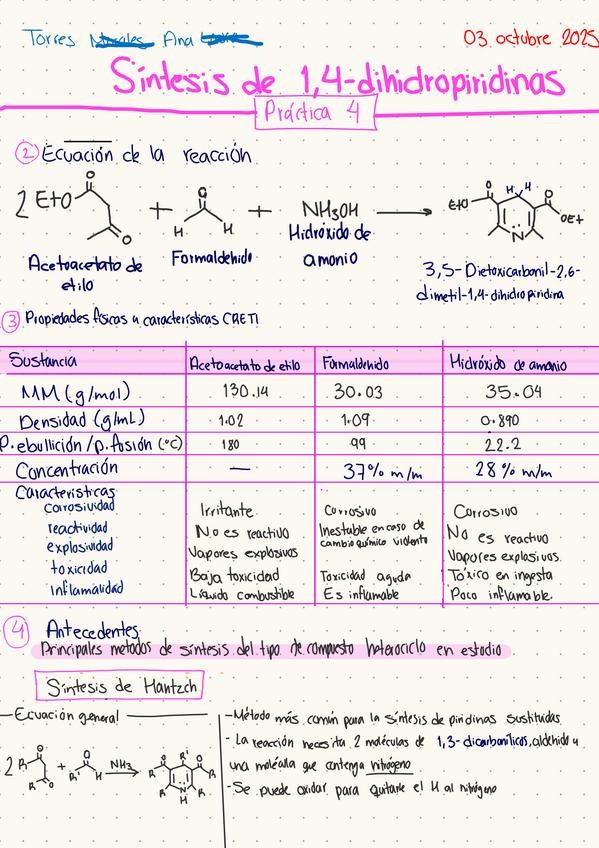 Torres Ana
03 octubre 2025
Síntesis de 1,4-dihidropiridinas
Práctica 4
② Ecuación de la reacción
2 EtO O O + O H H + NH₃OH → EtO O H H O OEt N
Acetoacetato de etilo
Formaldehido
Hidróxido de amonio
3,5-Dietoxicarbonil-2,6-
dimetil-1,4-dihidropiridina
③ Propiedades físicas y características CRETI
Sustancia Acetoacetato de etilo Formaldehido Hidróxido de amonio
MM (g/mol) 130.14 30.03 35.04
Densidad (g/mL) 1.02 1.09 0.890
P. ebullición/p. fusión (°C) 180 99 22.2
Concentración — 37% m/m 28% m/m
Características
corrosividad Irritante Corrosivo Corrosivo
reactividad No es reactivo Inestable en caso de cambio químico violento No es reactivo
explosividad Vapores explosivos Vapores explosivos.
toxicidad Baja toxicidad Toxicidad aguda Tóxico en ingesta
Inflamalidad Líquido combustible Es inflamable Poco inflamable.
④ Antecedentes
Principales metodos de síntesis del tipo de compuesto heterociclo en estudio
Síntesis de Hantzch
Ecuación general
2 R₁ O R O + O R' H NH₃ → O R' O R₁ R₁ R N R H
-Método más común para la síntesis de piridinas sustituidas
- La reacción necesita 2 moléculas de 1,3-dicarbonílicos, aldehído y
una molécula que contenga nitrógeno
-Se puede oxidar para quitarle el H al nitrógeno